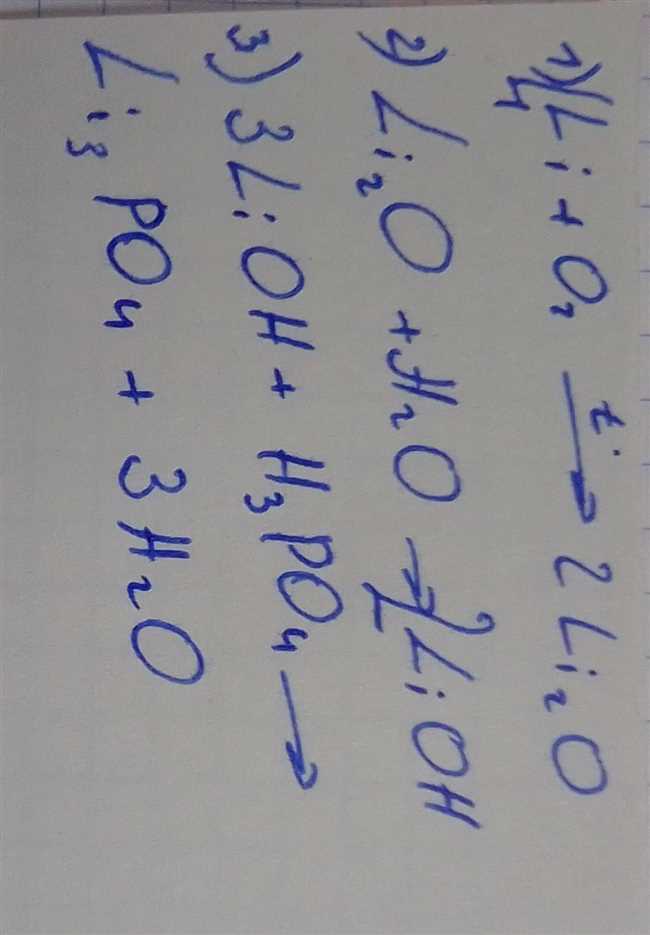 1) 4Li + O₂ t°→ 2Li₂O
2) Li₂O + H₂O → 2LiOH
3) 3LiOH + H₃PO₄ →
Li₃PO₄ + 3H₂O